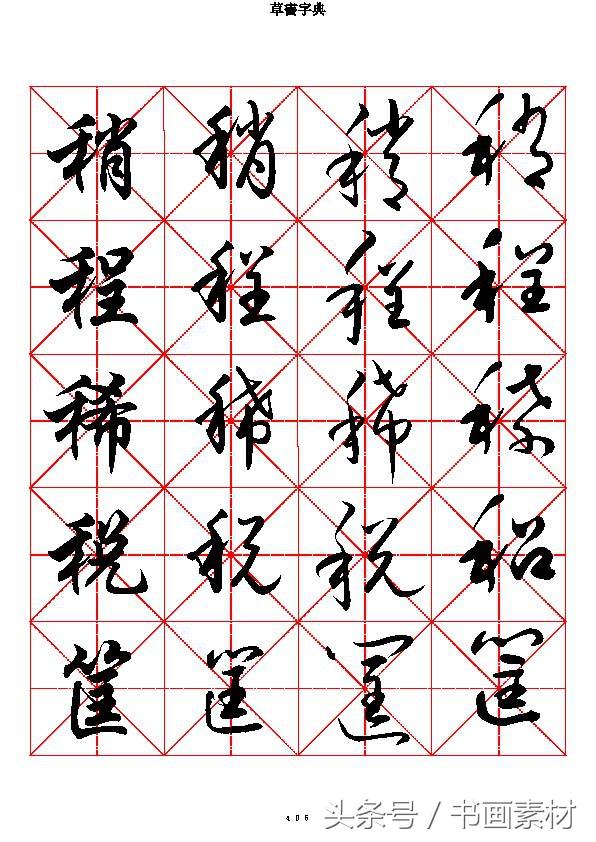 草書字典
稍 稍 稍 稍
程 程 程 程
稀 稀 稀 稀
税 税 税 税
筐 筐 筐 筐
406
头条号 / 书画素材